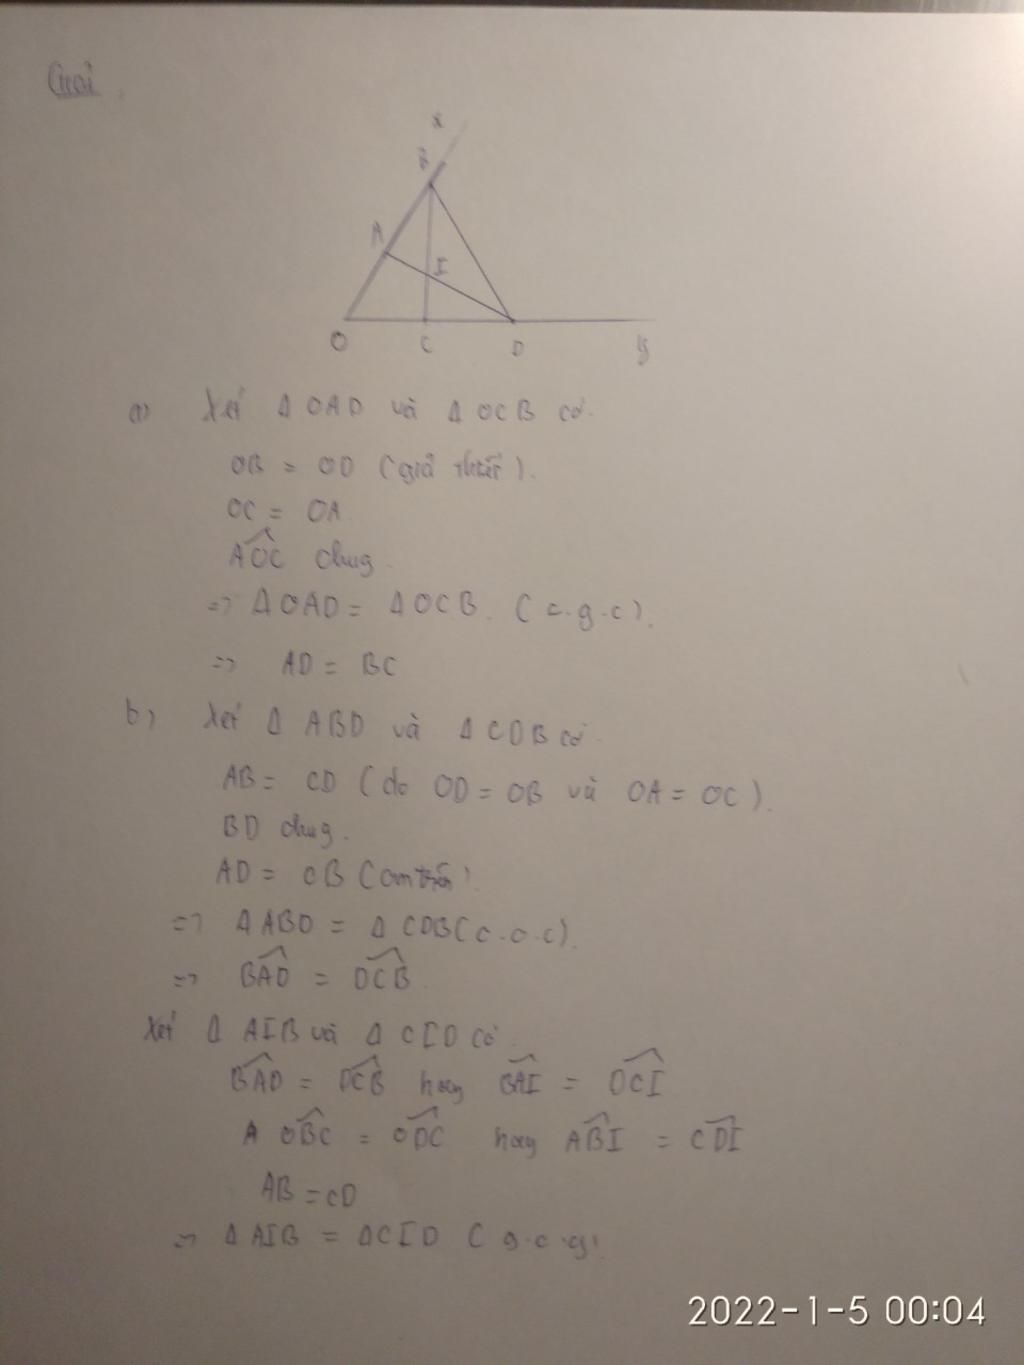 Giải
x
B
A
I
O C D y
a) Xét Δ OAD và Δ OCB có.
OB = OD (giả thiết).
OC = OA
AOC chung
=> Δ OAD = Δ OCB. (c.g.c).
=> AD = BC
b) Xét Δ ABD và Δ CDB có
AB = CD (do OD = OB và OA = OC).
BD chung.
AD = CB (cm trên)
=> Δ ABD = Δ CDB (c.c.c).
=> BAD = DCB
Xét Δ AIB và Δ CID có
BAD = DCB hay BAI = DCI
A OBC = ODC hay ABI = CDI
AB = CD
=> Δ AIB = ΔCID (g.c.g)
2022-1-5 00:04